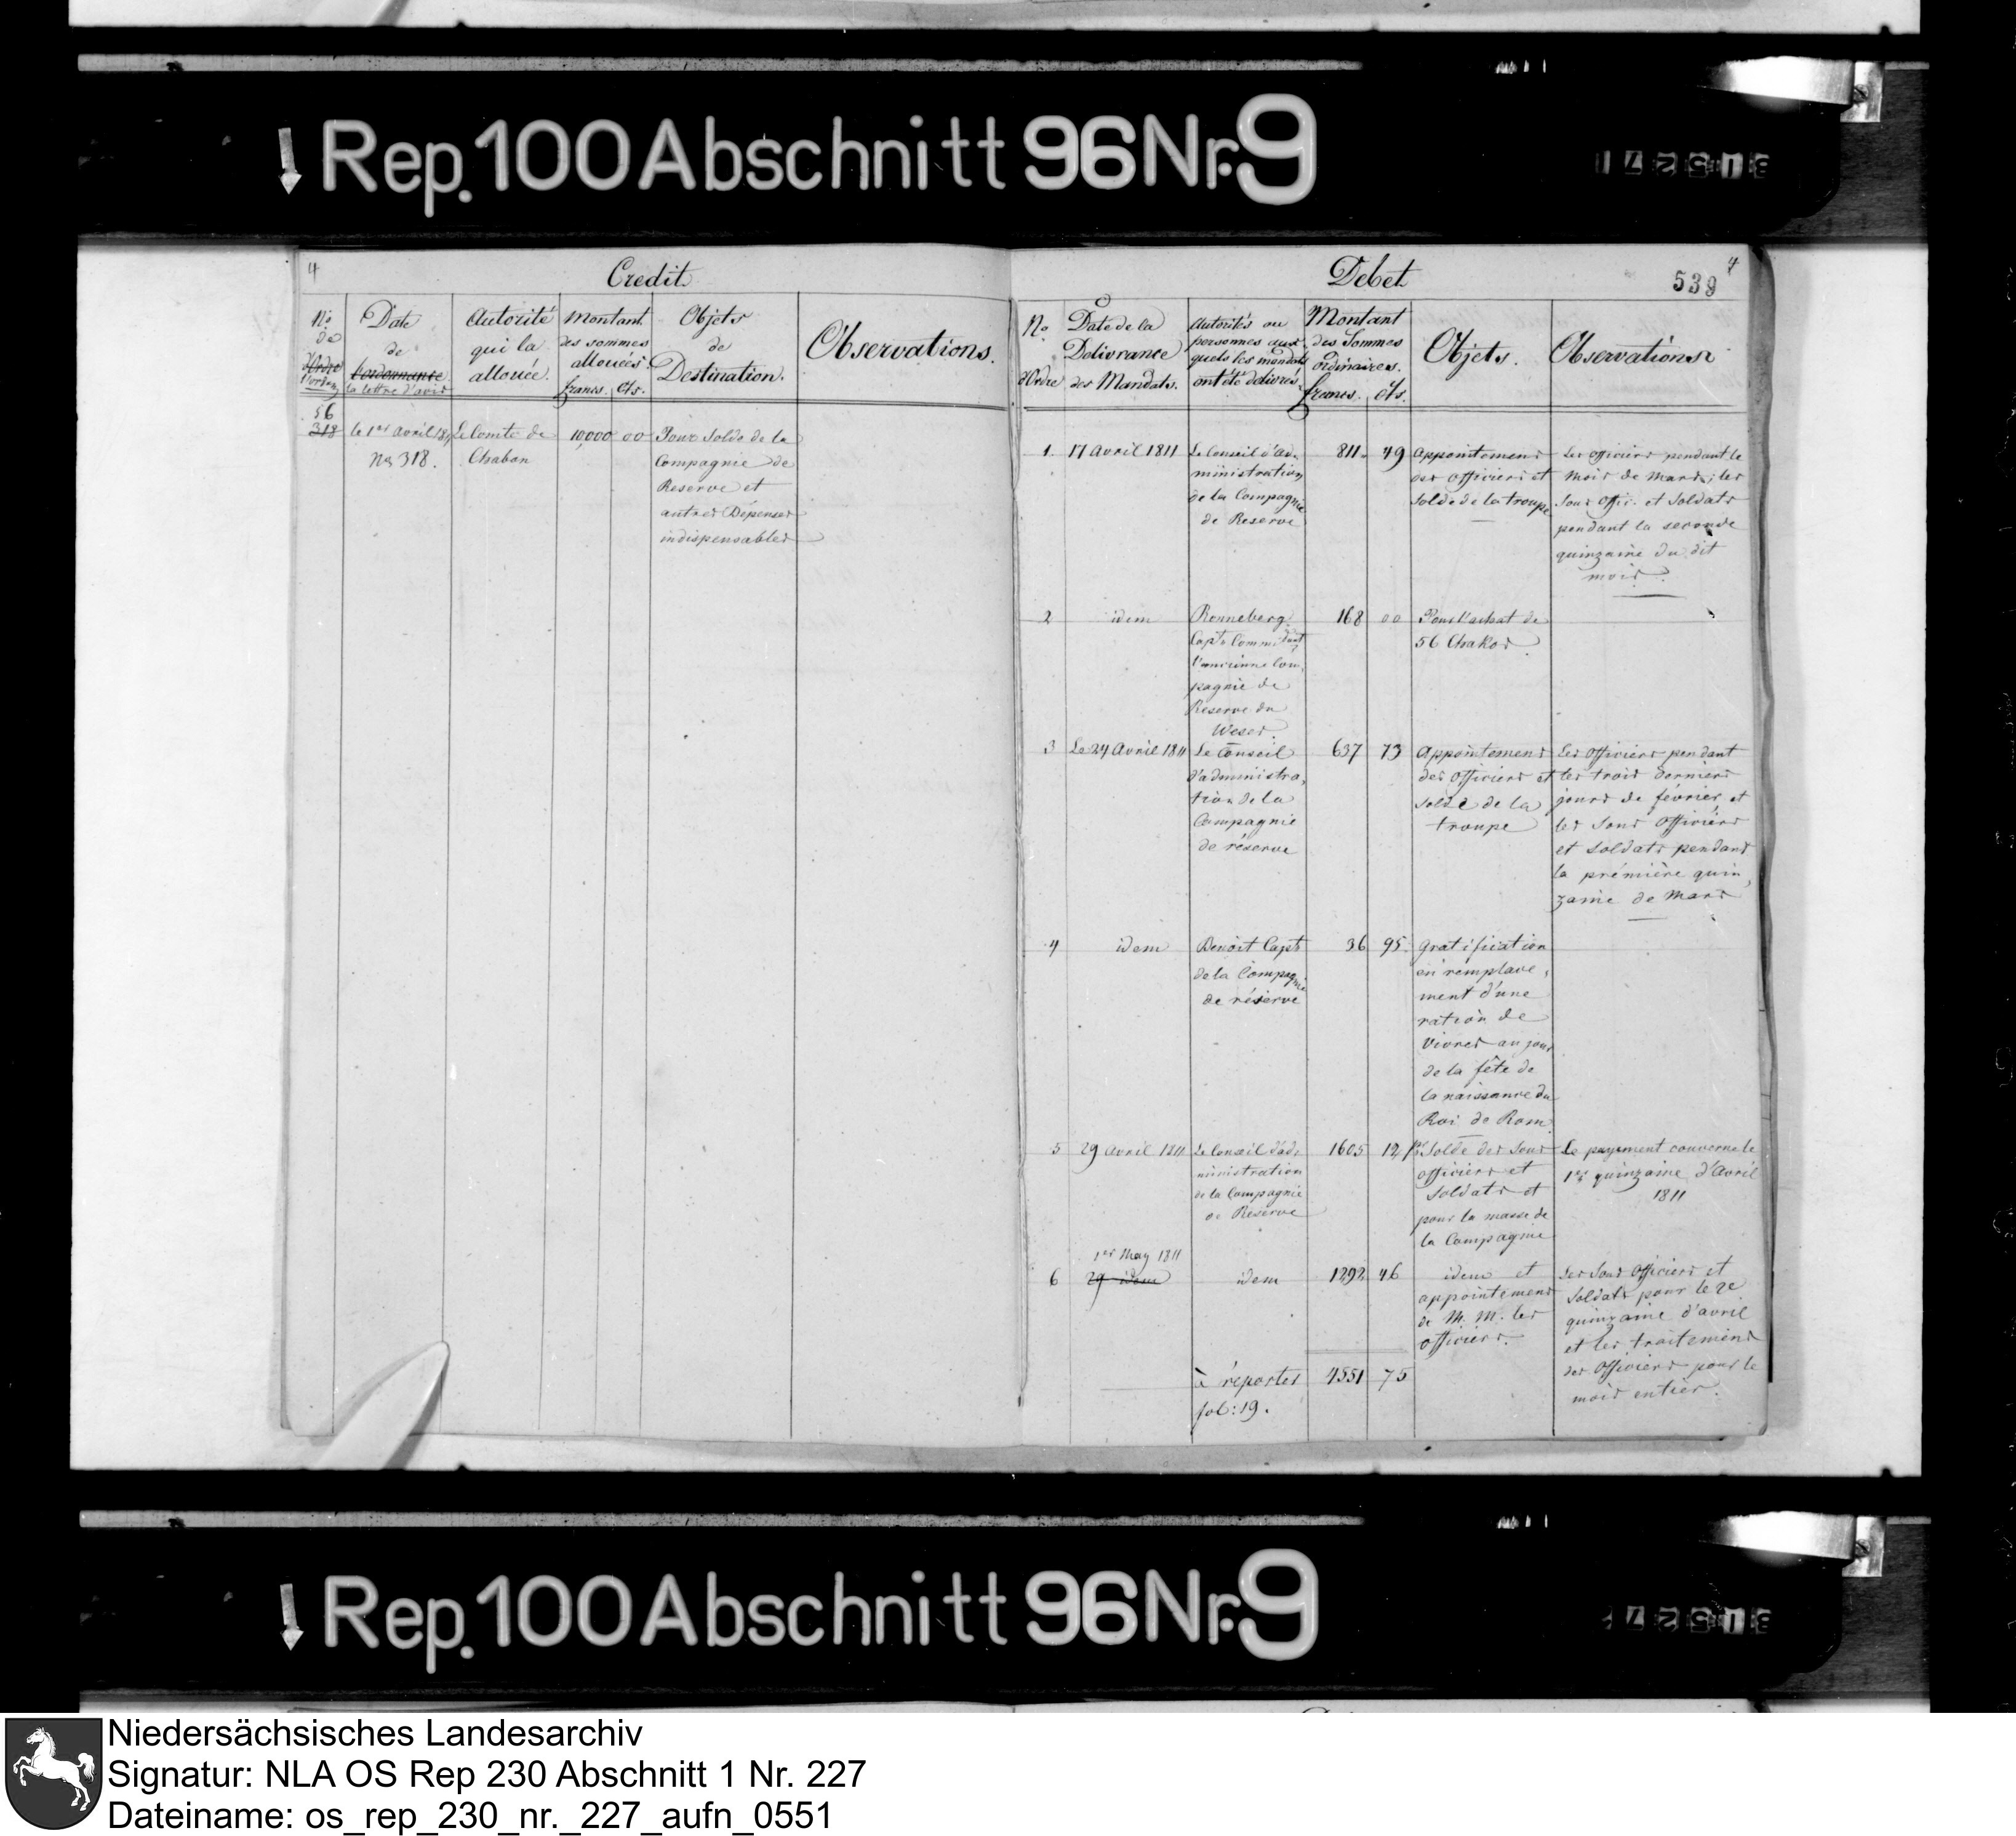 Rep. 100 Abschnitt 96 Nr. 9
4
Credit.
No
de
d'Ordre
Date
de
l'ordonnance
la lettre d'avis
Autorité
qui la
allouée.
Montant
des sommes
allouées
francs. cts.
Objets
de
Destination.
Observations.
56
318
le 1er avril 1811
No 318.
Le Comte de
Chaban
10,000 00
Pour Solde de la
Compagnie de
Reserve et
autres Dépenses
indispensables
Debet
4
539
No
d'Ordre
Date de la
Delivrance
des Mandats.
Autorités ou
personnes aux
quels les mandats
ont été delivrés.
Montant
des Sommes
ordinaires.
francs. cts.
Objets.
Observations
1. 17 avril 1811
Le Conseil d'ad-
ministration
de la Compagnie
de Reserve
811. 49
appointemens
des officiers et
solde de la troupe
Les officiers pendant le
mois de Mars; les
Sous Offic. et Soldats
pendant la seconde
quinzaine du dit
mois.
2 idem
Ronneberg
Capt. Commdant
l'ancienne Com-
pagnie de
Reserve du
Weser.
168 00
Pour l'achat de
56 Chakos.
3 Le 24 Avril 1811
Le Conseil
d'administra-
tion de la
Compagnie
de réserve
637 73
appointemens
des officiers et
solde de la
troupe
Les officiers pendant
les trois derniers
jours de février et
les Sous officiers
et Soldats pendant
la première quin-
zaine de Mars
4 idem
Benoit Capt.
de la Compagnie
de réserve
36 95.
gratification
en remplace-
ment d'une
ration de
vivres au jour
de la fête de
la naissance du
Roi de Rom.
5 29 avril 1811
Le Conseil d'ad-
ministration
de la Compagnie
de Réserve
1605 12
pr. Solde des Sous
officiers et
Soldats et
pour la masse de
la Compagnie
Le payement concerne le
1re quinzaine d'Avril
1811
1er May 1811
6 29 idem
idem
1292 46
idem et
appointemens
de M. M. les
officiers.
Les Sous officiers et
Soldats pour le 2e
quinzaine d'avril
et les traitemens
des officiers pour le
mois entier.
à réporter
fol: 19.
4551 75
Rep. 100 Abschnitt 96 Nr. 9
Niedersächsisches Landesarchiv
Signatur: NLA OS Rep 230 Abschnitt 1 Nr. 227
Dateiname: os_rep_230_nr._227_aufn_0551